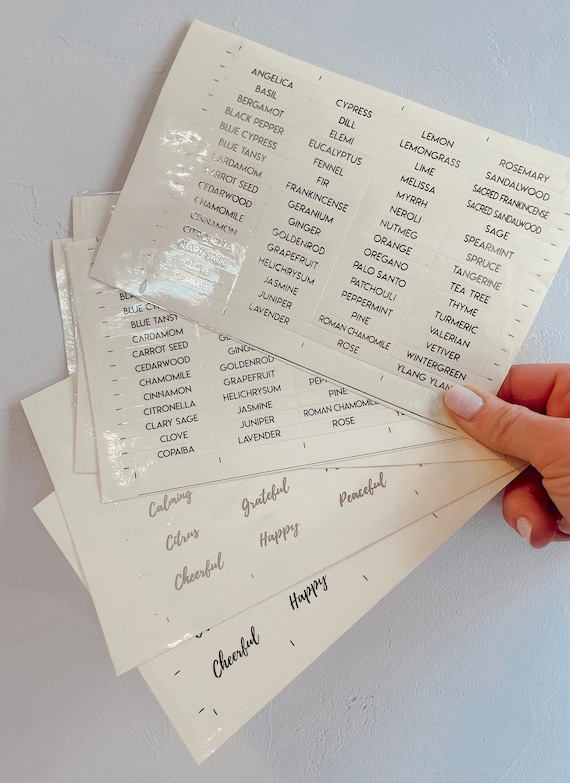 ANGELICA
BASIL
BERGAMOT
BLACK PEPPER
BLUE CYPRESS
BLUE TANSY
CARDAMOM
CARROT SEED
CEDARWOOD
CHAMOMILE
CINNAMON
CITRONELLA
CLARY SAGE
CLOVE
COPAIBA
CYPRESS
DILL
ELEMI
EUCALYPTUS
FENNEL
FIR
FRANKINCENSE
GERANIUM
GINGER
GOLDENROD
GRAPEFRUIT
HELICHRYSUM
JASMINE
JUNIPER
LAVENDER
LEMON
LEMONGRASS
LIME
MELISSA
MYRRH
NEROLI
NUTMEG
ORANGE
OREGANO
PALO SANTO
PATCHOULI
PEPPERMINT
PINE
ROMAN CHAMOMILE
ROSE
ROSEMARY
SANDALWOOD
SACRED FRANKINCENSE
SACRED SANDALWOOD
SAGE
SPEARMINT
SPRUCE
TANGERINE
TEA TREE
THYME
TURMERIC
VALERIAN
VETIVER
WINTERGREEN
YLANG YLAN
BLUE CY
BLUE TANSY
CARDAMOM
CARROT SEED
CEDARWOOD
CHAMOMILE
CINNAMON
CITRONELLA
CLARY SAGE
CLOVE
COPAIBA
GINGE
GOLDENROD
GRAPEFRUIT
HELICHRYSUM
JASMINE
JUNIPER
LAVENDER
PEPP
PINE
ROMAN CHAMOMILE
ROSE
Calming
Citrus
Cheerful
Grateful
Happy
Peaceful
Cheerful
Happy